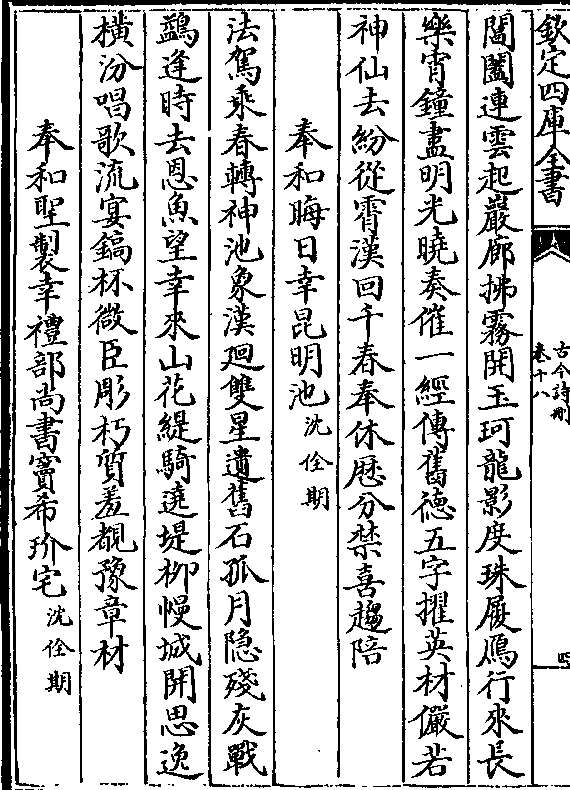 欽定四庫全書
古今詩刪
卷十八
四
閶闔連雲起巖廊拂霧開玉珂龍影度珠履鴈行來長
樂宵鐘盡明光曉奏催一經傳舊德五字擢英材儼若
神仙去紛從霄漢回千春奉休厯分禁喜趨陪
奉和晦日幸昆明池沈佺期
法駕乘春轉神池象漢廻雙星遺舊石孤月隱殘灰戰
鷁逢時去恩魚望幸來山花緹騎遶堤柳幔城開思逸
橫汾唱歌流宴鎬杯微臣彫朽質羞覩豫章材
奉和聖製幸禮部尚書竇希玠宅沈佺期